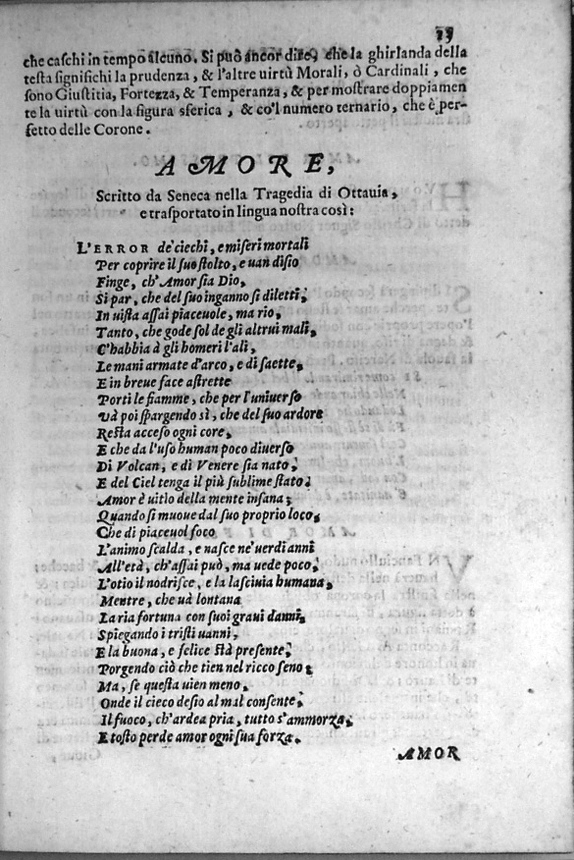 23
che caschi in tempo alcuno. Si può ancor dire, che la ghirlanda della
testa significhi la prudenza, & l'altre uirtù Morali, ò Cardinali, che
sono Giustitia, Fortezza, & Temperanza, & per mostrare doppiamen
te la uirtù con la figura sferica, & co'l numero ternario, che è per-
fetto delle Corone.
AMORE,
Scritto da Seneca nella Tragedia di Ottauia,
e trasportato in lingua nostra così:
L'ERROR de' ciechi, e miseri mortali
Per coprire il suo stolto, e uan disio
Finge, ch'Amor sia Dio,
Si par, che del suo inganno si diletti,
In uista assai piaceuole, ma rio,
Tanto, che gode sol de gli altrui mali,
C'habbia à gli homeri l'ali,
Le mani armate d'arco, e di saette,
E in breue face astrette
Porti le fiamme, che per l'uniuerso
Và poi spargendo sì, che del suo ardore
Resta acceso ogni core,
E che da l'uso human poco diuerso
Di Volcan, e di Venere sia nato,
E del Ciel tenga il più sublime stato.
Amor è uitio della mente insana;
Quando si muoue dal suo proprio loco,
Che di piaceuol foco
L'animo scalda, e nasce ne' uerdi anni
All'età, ch'assai può, ma uede poco,
L'otio il nodrisce, e la lasciuia humana,
Mentre, che uà lontana
La ria fortuna con suoi graui danni,
Spiegando i tristi uanni,
E la buona, e felice stà presente,
Porgendo ciò che tien nel ricco seno;
Ma, se questa uien meno,
Onde il cieco desio al mal consente,
Il fuoco, ch'ardea pria, tutto s'ammorza,
E tosto perde amor ogni sua forza.
AMOR